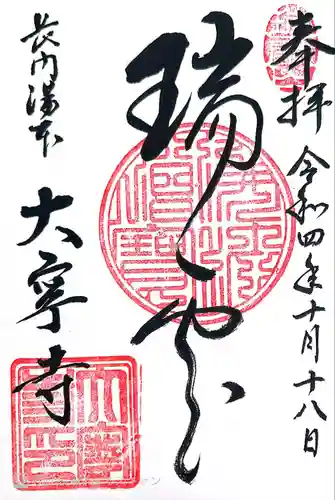 奉拝
令和四年十月十八日
瑞雲
長門湯本
大寧寺